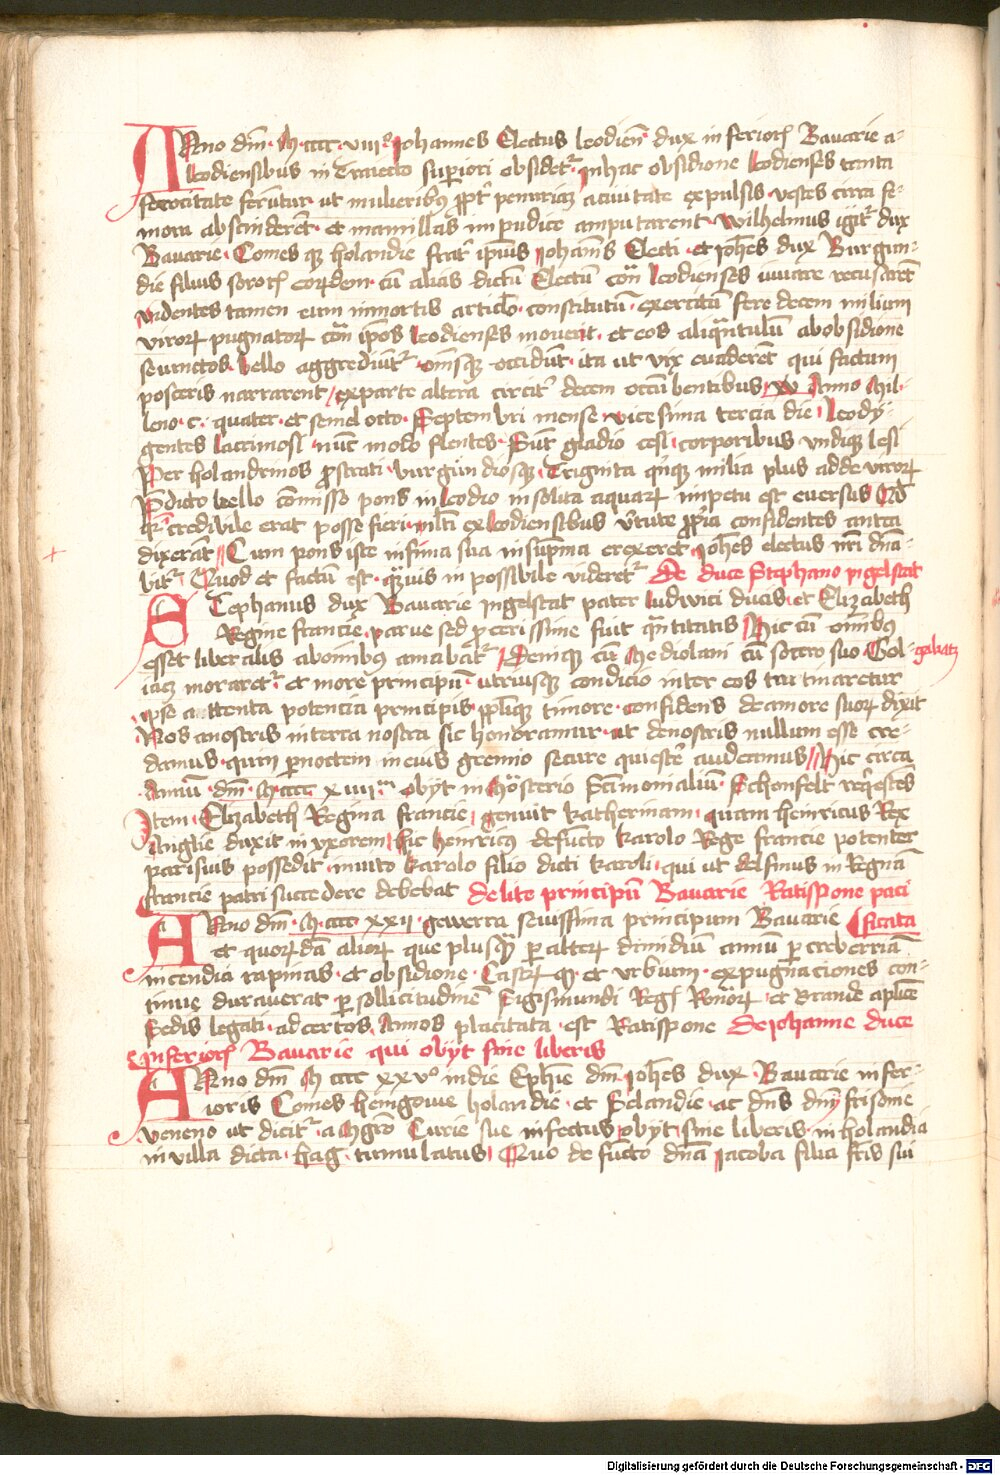 Anno dm̄ · M · cccc · viii° Johannes Electus leodien̄ dux inferior̄ Bavarie a
leodiensibus in Traiecto superiori obsidet̄ · In hac obsidione leodienses tanta
ferocitate ferūtur ut mulieribus ppt̄ penuriam a civitate expulsis vestes circa fe-
mora abscinderēt · et mamillas impudice amputarent · Wilhelmus igit̄ dux
Bavarie · Comes qz holandie frat̄ ipius Johānis Electi · et Joh̄es dux Burgun-
die filius soror̄ eorūdem · cū alias dictū Electū cōtra leodienses iuvare recusarēt
videntes tamen eum in mortis articl̄o constitutū · exercitū fere decem milium
viror̄ pugnator̄ cōtra ip̄os leodienses moverūt · et eos aliqn̄tulū ab obsidione
seiunctos bello aggrediūt̄ · om̄sque occidūt · ita ut vix evaderēt qui factum
posteris narrarent / ex parte altera circit̄ decem occūbentibus / W Anno Mil-
leno · c · quater · et semel octo · Septembri mense vicesima tercia die leody
gentes lacrimosi nūc modo flentes · Sūt gladio cesi corporibus undique lesi
Per holandrinos prostrati burgūndiosque Triginta quīque milia plus adde viror̄
Predicto bello cōmisso pons in leodio insolita aquar̄ impetu est eversus Qd
qr̄ credibile erat posse fieri · multi ex leodiensibus v̄tute pp̄ria confidentes antea
dixerāt // Cum pons iste infima sua in sup̄ma erexeret · Joh̄es electus nr̄i dn̄a-
bit̄ / Quod et factū est · qm̄vis inpossibile videret̄ De duce Stephano ingelstat
Stephanus dux Bavarie ingelstat pater ludwici ducis et Elizabeth
Regine francie · parve sed pcerissime fuit quātitatis / Hic cū om̄ibus
esset liberalis ab om̄ibus amabat̄ / Deniqz cū Mediolani cū socero suo Gol- gabatz
iacz moraret̄ · et more principū utriusqz condicio inter eos tractinaretur
ipse attenta potencia principis pplīqz timore · confidens de amore suor̄ dixit
Nos a nostris in terra nostra sic honoramur · ut de nostris nullum esse cre-
damus · quin p noctem in eius gremio secure quiesce audeamus // Hic circa
Annū · dm̄ · M · cccc xiiii · obyt in Mōsterio Sctīmonialiū Schonfelt reqescēs
Item Elizabeth Regina francie genuit Katherinam · quam heinricus Rex
Anglie duxit in vxorem hic heinricus defuncto Karolo Rege francie potenter
parisius possedit · invito Karolo filio dicti Karoli · qui ut delfinus in Regnū
francie patri succedere debebat de lite principū Bavarie Ratispone paci
Anno dm̄ · M · cccc xxij · gewerra sevissima principum Bavarie ficata
et quor̄dā alior̄ que plusqm̄ p alter̄ dimidiū annū p creberriā
incendia rapinas · et obsidione Castror̄ qz et urbium · expugnaciones con-
tinue duraverat p sollicitudinē Sigismundi Regis Romanor̄ et Brande aplīce
Sedis legati · ad certos Annos placitata est Ratispone De Johanne duce
inferior̄ Bavarie qui obyt sine liberis
Anno dm̄ M cccc xxv° in die Ephīe dm̄ Joh̄es dux Bavarie infer-
ioris Comes henigowe holandie et Selandie ac dn̄s dn̄ij frisonie
veneno ut dicit̄ a Mgr̄o Curie sue infectus obyt sine liberis in holandia
in villa dicta hag tumulatus / Quo defūcto dn̄a Jacoba filia fr̄is sui